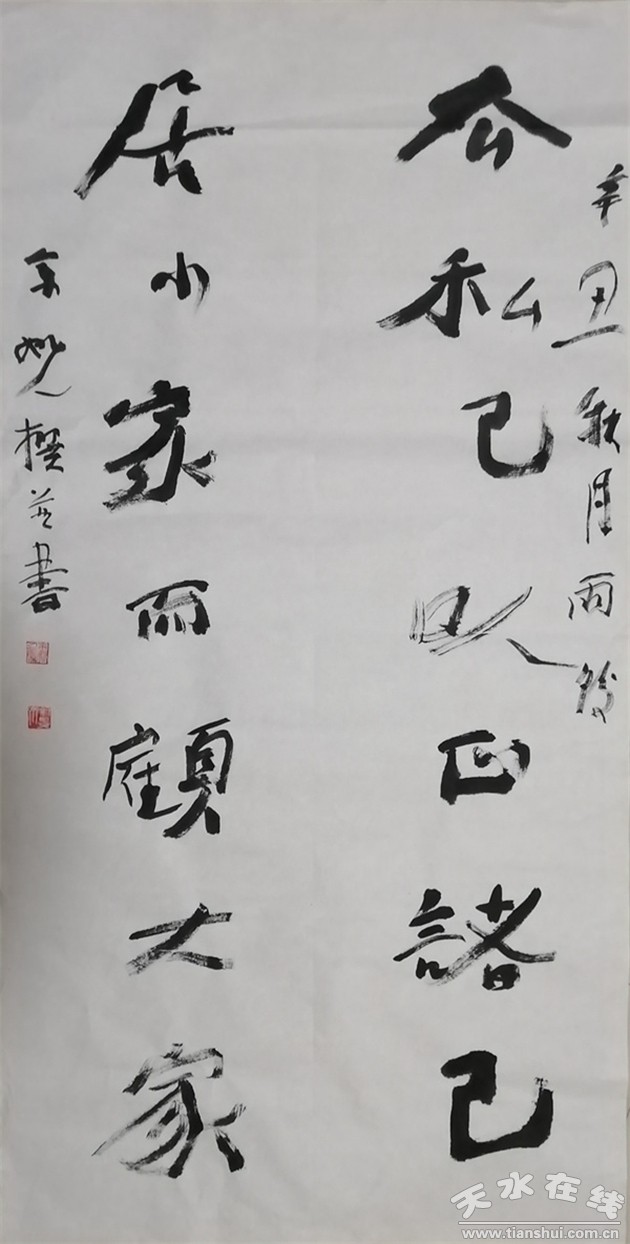 辛丑秋月雨後
公私己以正諸己
居小家而顧大家
撰並書
天水在线
www.tianshui.com.cn